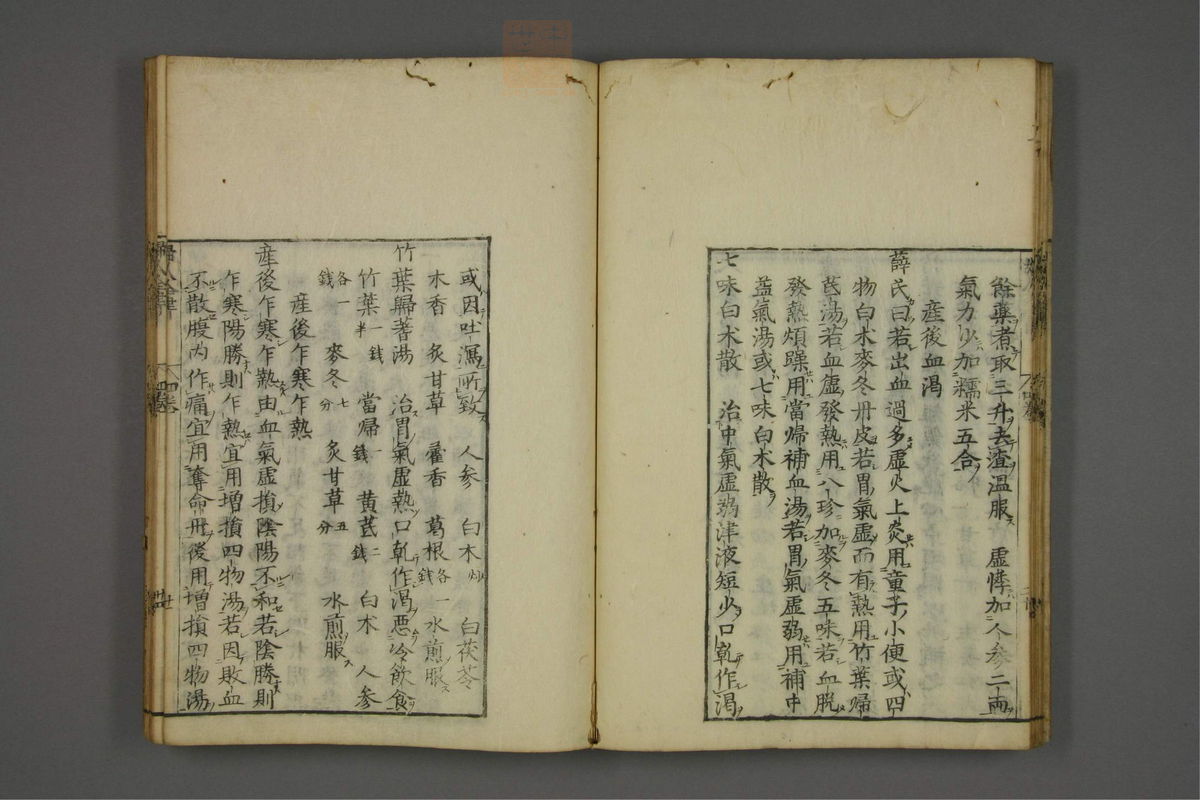 餘藥煮取三升去渣溫服　虛悸加人参二兩
氣力少加糯米五合
産後血渴
薛氏曰若出血過多虛火上炎用童子小便或四
物白朮麥冬丹皮若胃氣虛而有熱用竹葉歸
芪湯若血虛發熱用八珍加麥冬五味若血脫
發熱煩躁用當歸補血湯若胃氣虛弱用補中
益氣湯或七味白朮散
七味白朮散　治中氣虛弱津液短少口乾作渴
或因吐瀉所致　人参　白朮炒　白茯苓
木香　炙甘草　藿香　葛根各一錢　水煎服
竹葉歸蓍湯　治胃氣虛熱口乾作渴惡冷飲食
竹葉一錢半　當歸一錢　黃芪二錢　白朮　人参
各一錢　麥冬七分　炙甘草五分　水煎服
産後乍寒乍熱
産後乍寒乍熱由血氣虛損陰陽不和若陰勝則
乍寒陽勝則乍熱宜用增損四物湯若因敗血
不散腹內作痛宜用奪命丹後用增損四物湯
四卷